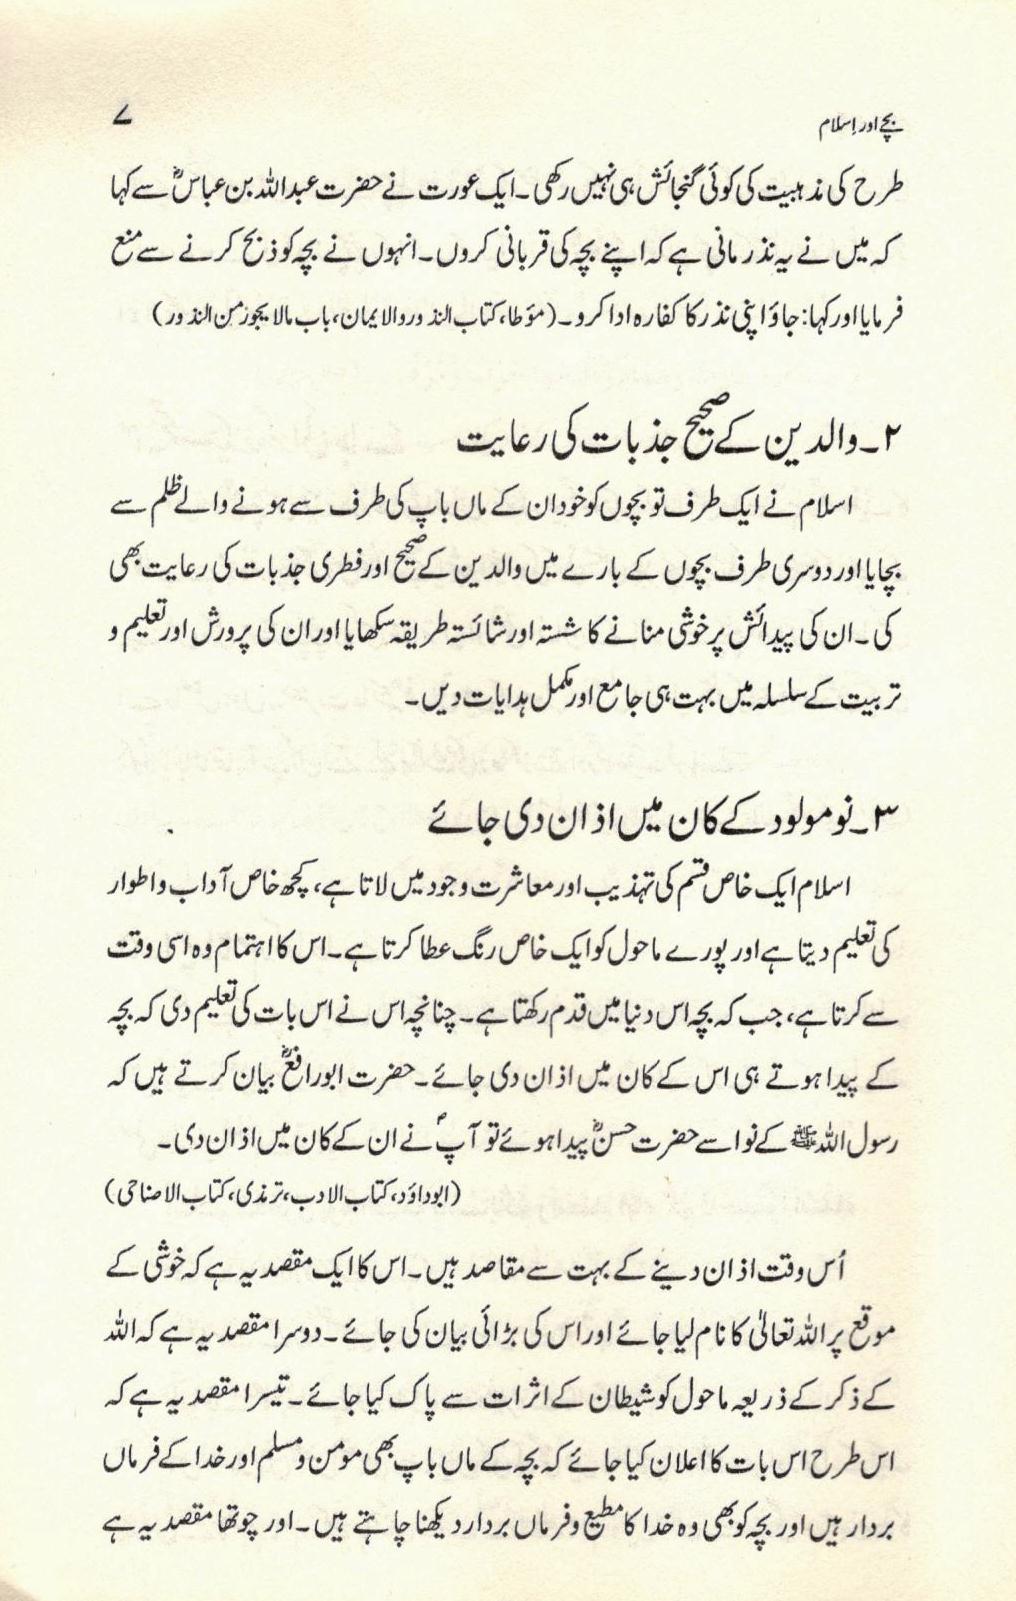 بچے اور اسلام ۷
طرح کی مذہبیت کی کوئی گنجائش ہی نہیں رکھی۔ ایک عورت نے حضرت عبداللہ بن عباسؓ سے کہا
کہ میں نے یہ نذر مانی ہے کہ اپنے بچہ کی قربانی کروں۔ انہوں نے بچہ کو ذبح کرنے سے منع
فرمایا اور کہا: جاؤ اپنی نذر کا کفارہ ادا کرو۔ (مؤطا، کتاب النذور والایمان، باب مالا یجوز من النذور)
۲۔ والدین کے صحیح جذبات کی رعایت
اسلام نے ایک طرف تو بچوں کو خود ان کے ماں باپ کی طرف سے ہونے والے ظلم سے
بچایا اور دوسری طرف بچوں کے بارے میں والدین کے صحیح اور فطری جذبات کی رعایت بھی
کی۔ ان کی پیدائش پر خوشی منانے کا شستہ اور شائستہ طریقہ سکھایا اور ان کی پرورش اور تعلیم و
تربیت کے سلسلہ میں بہت ہی جامع اور مکمل ہدایات دیں۔
۳۔ نومولود کے کان میں اذان دی جائے
اسلام ایک خاص قسم کی تہذیب اور معاشرت وجود میں لاتا ہے، کچھ خاص آداب و اطوار
کی تعلیم دیتا ہے اور پورے ماحول کو ایک خاص رنگ عطا کرتا ہے۔ اس کا اہتمام وہ اسی وقت
سے کرتا ہے، جب کہ بچہ اس دنیا میں قدم رکھتا ہے۔ چنانچہ اس نے اس بات کی تعلیم دی کہ بچہ
کے پیدا ہوتے ہی اس کے کان میں اذان دی جائے۔ حضرت ابورافعؓ بیان کرتے ہیں کہ
رسول اللہ ﷺ کے نواسے حضرت حسنؓ پیدا ہوئے تو آپؐ نے ان کے کان میں اذان دی۔
(ابوداؤد، کتاب الادب، ترمذی، کتاب الاضاحی)
اُس وقت اذان دینے کے بہت سے مقاصد ہیں۔ اس کا ایک مقصد یہ ہے کہ خوشی کے
موقع پر اللہ تعالیٰ کا نام لیا جائے اور اس کی بڑائی بیان کی جائے۔ دوسرا مقصد یہ ہے کہ اللہ
کے ذکر کے ذریعہ ماحول کو شیطان کے اثرات سے پاک کیا جائے۔ تیسرا مقصد یہ ہے کہ
اس طرح اس بات کا اعلان کیا جائے کہ بچہ کے ماں باپ بھی مومن و مسلم اور خدا کے فرماں
بردار ہیں اور بچہ کو بھی وہ خدا کا مطیع و فرماں بردار دیکھنا چاہتے ہیں۔ اور چوتھا مقصد یہ ہے